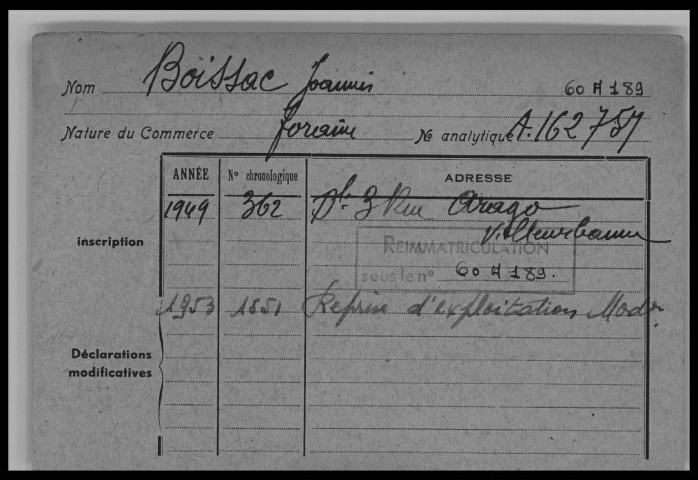 Nom Boissac Joannes 60 A 189
Nature du Commerce forain No analytique A.162757
ANNÉE No chronologique ADRESSE
1949 362 3 Rue Arago
Villeurbanne
inscription
REIMMATRICULATION
sous le no 60 A 189.
1953 1851 Reprise d'exploitation
Déclarations
modificatives